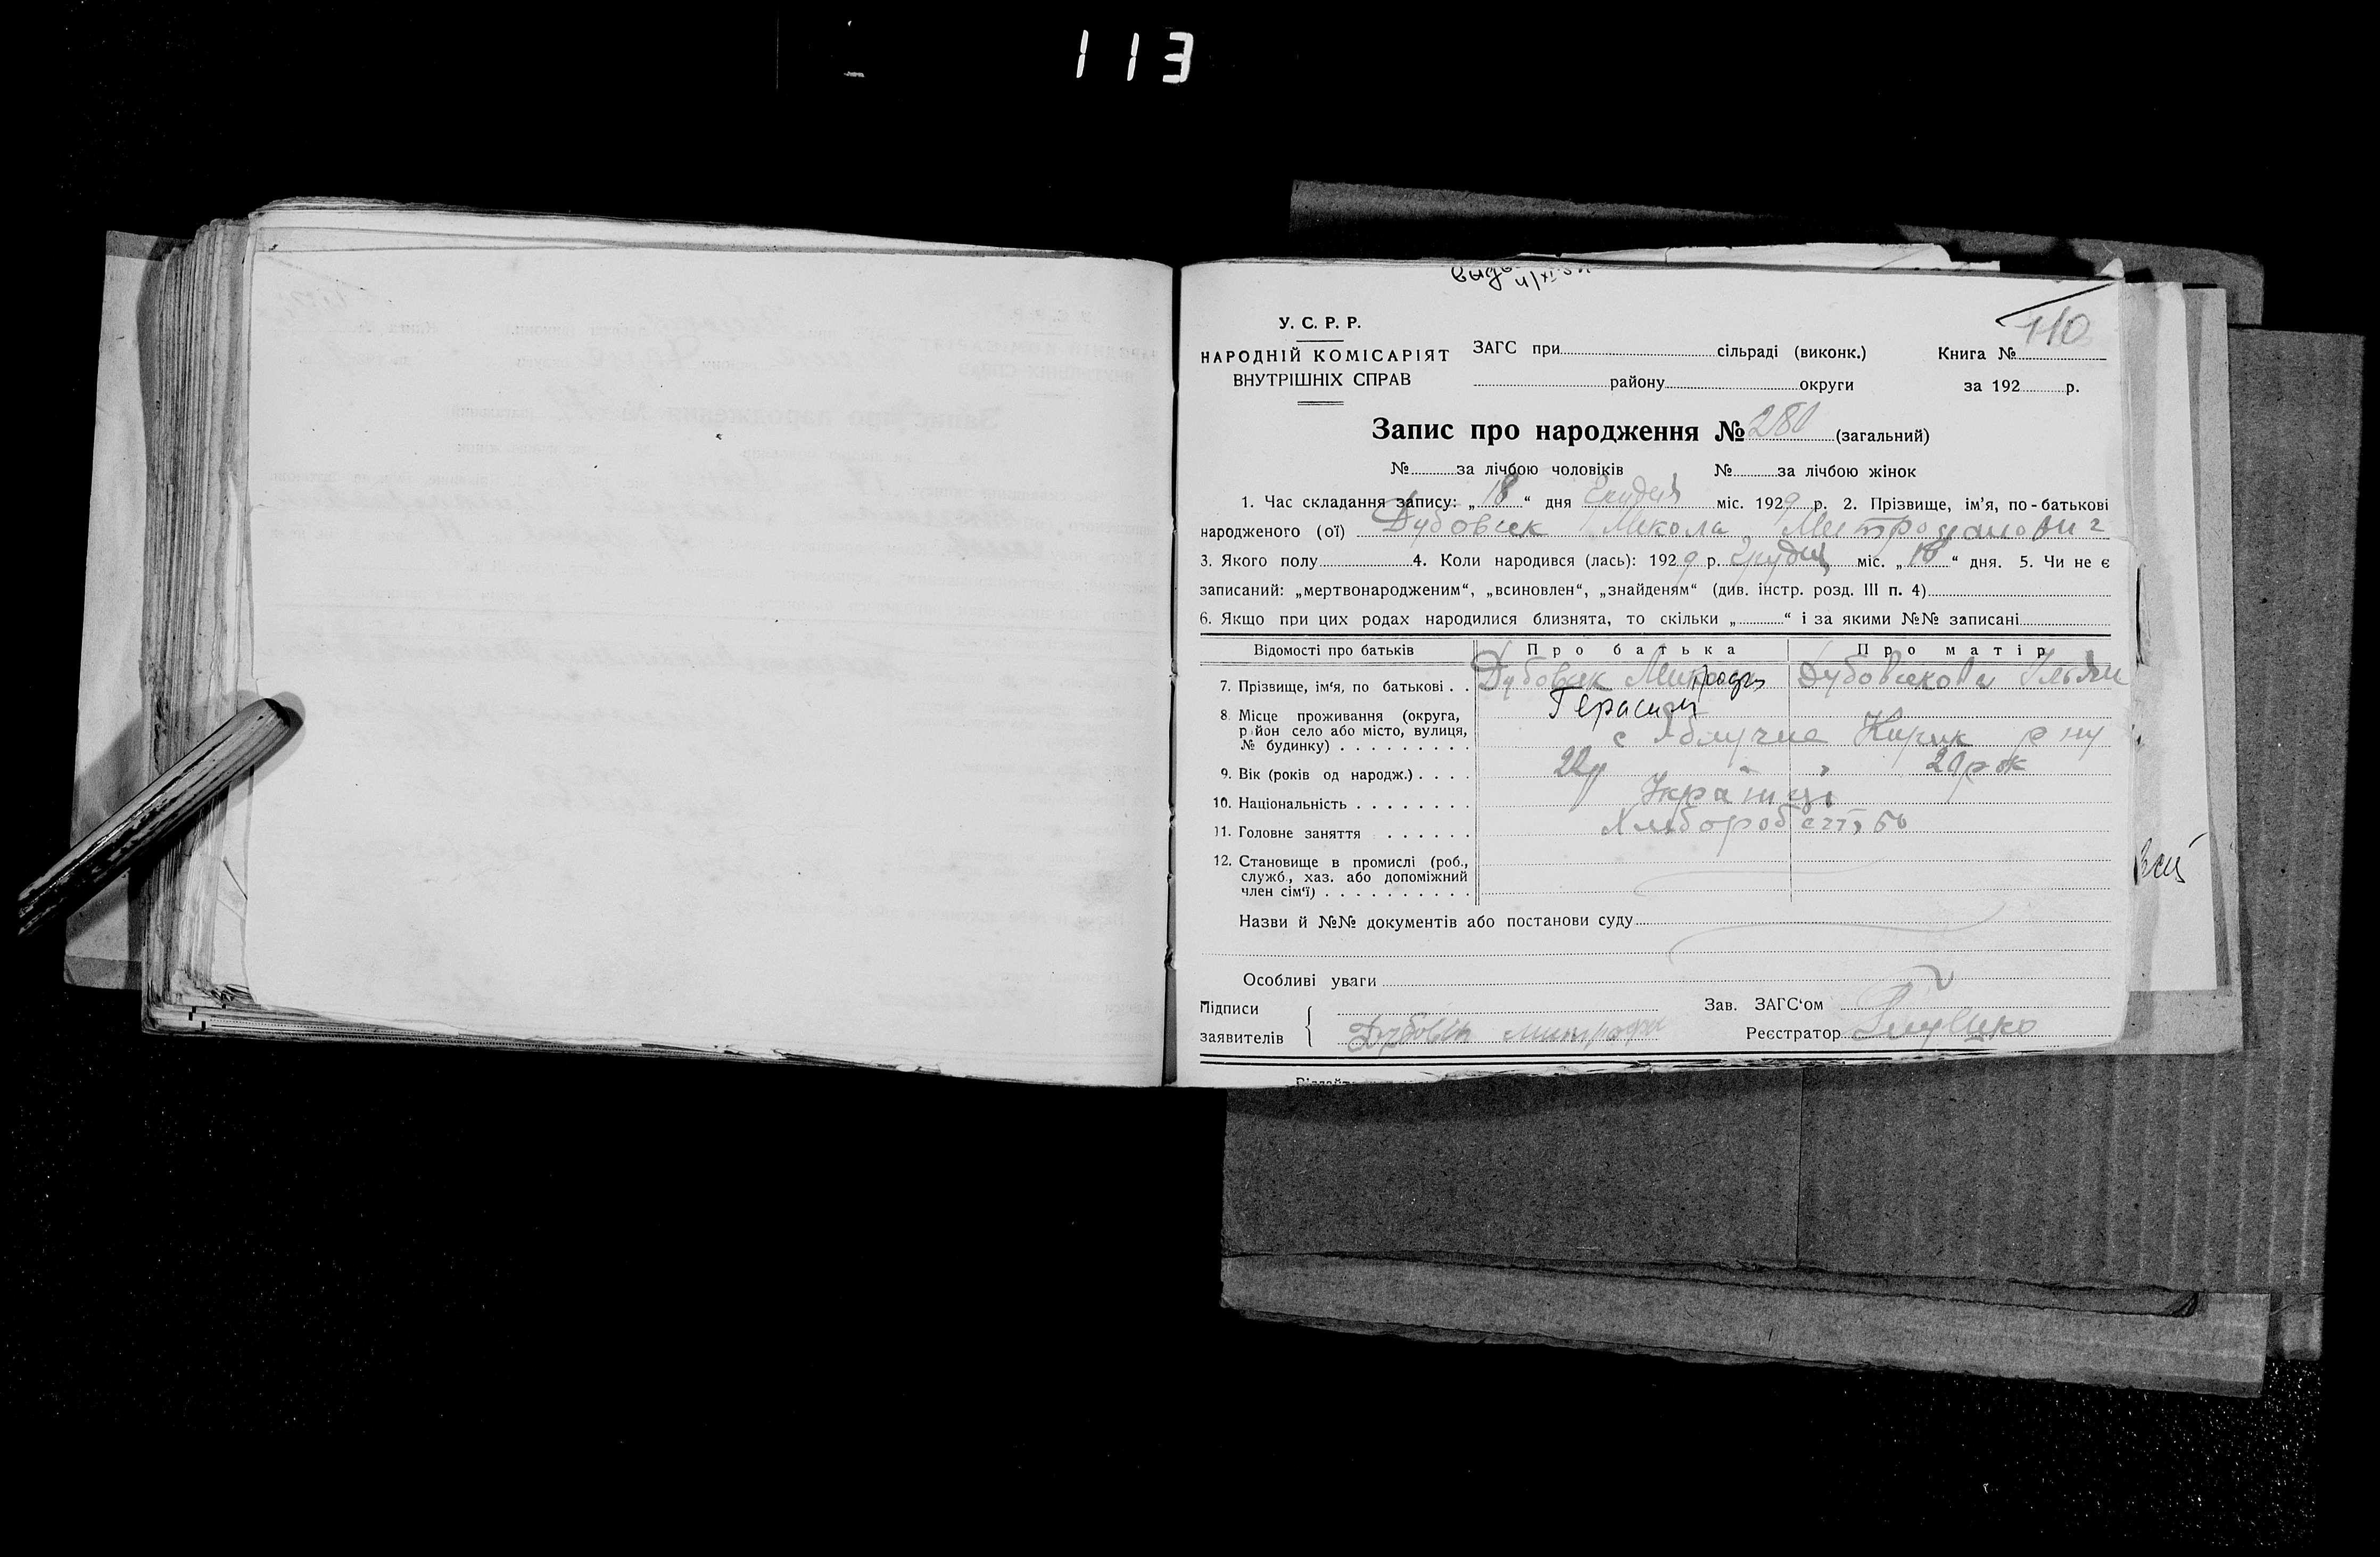 113
110
У. С. Р. Р.
НАРОДНІЙ КОМІСАРІЯТ
ВНУТРІШНІХ СПРАВ
ЗАГС при сільраді (виконк.)
району округи
Книга №
за 192 р.
Запис про народження № 280 (загальний)
№ за лічбою чоловіків № за лічбою жінок
1. Час складання запису: „18“ дня Грудня міс. 1929 р. 2. Прізвище, ім'я, по-батькові
народженого (ої) Дубовик Микола Митрофанович
3. Якого полу 4. Коли народився (лась): 1929 р. Грудня міс. „18“ дня. 5. Чи не є
записаний: „мертвонародженим“, „всиновлен“, „знайденям“ (див. інстр. розд. III п. 4)
6. Якщо при цих родах народилися близнята, то скільки „ “ і за якими №№ записані
Відомості про батьків Про батька Про матір
7. Прізвище, ім'я, по батькові . . Дубовик Митрофан Дубовикова
Герасим
8. Місце проживання (округа,
район село або місто, вулиця,
№ будинку) . . . . . . . . . с Яблучне р ну
9. Вік (років од народж.) . . . . 22р " " 20 рок
10. Національність . . . . . . . . Українці
11. Головне заняття . . . . . . Хліборобство
12. Становище в промислі (роб.,
служб., хаз. або допоміжний
член сім'ї) . . . . . . . . . .
Назви й №№ документів або постанови суду
Особливі уваги
Підписи
заявителів Дубовик Митрофан
Зав. ЗАГС'ом
Реєстратор